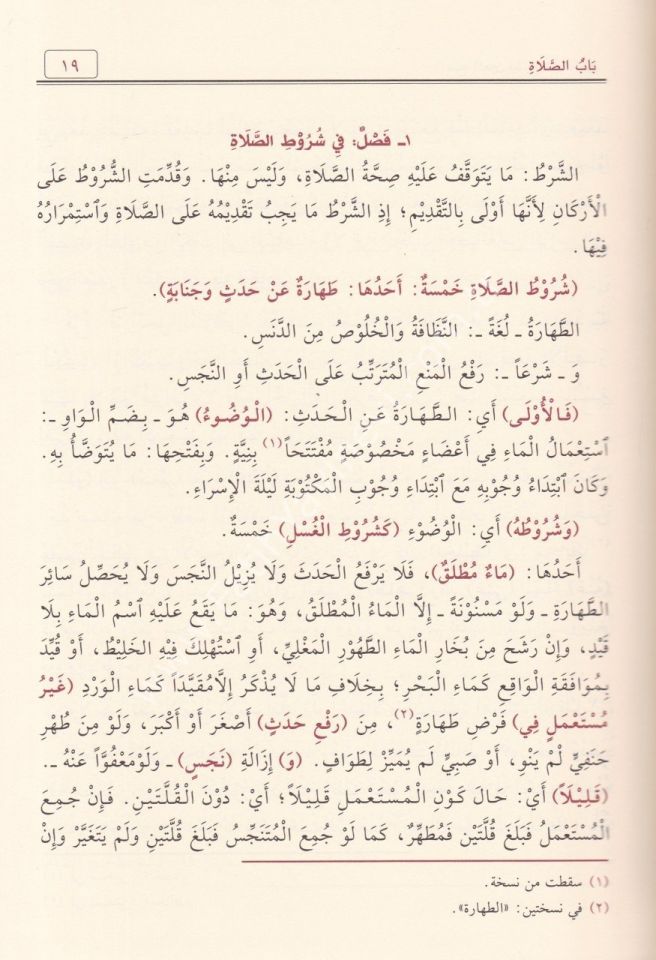 بَابُ الصَّلَاةِ
١٩
١ـ فَصْلٌ: فِي شُرُوْطِ الصَّلَاةِ
الشَّرْطُ: مَا يَتَوَقَّفُ عَلَيْهِ صِحَّةُ الصَّلَاةِ، وَلَيْسَ مِنْهَا. وَقُدِّمَتِ الشُّرُوْطُ عَلَى
الْأَرْكَانِ لِأَنَّهَا أَوْلَى بِالتَّقْدِيْمِ؛ إِذِ الشَّرْطُ مَا يَجِبُ تَقْدِيْمُهُ عَلَى الصَّلَاةِ وَاسْتِمْرَارُهُ
فِيْهَا.
(شُرُوْطُ الصَّلَاةِ خَمْسَةٌ: أَحَدُهَا: طَهَارَةٌ عَنْ حَدَثٍ وَجَنَابَةٍ).
الطَّهَارَةُ ـ لُغَةً ـ: النَّظَافَةُ وَالْخُلُوْصُ مِنَ الدَّنَسِ.
وَ ـ شَرْعَاً ـ: رَفْعُ الْمَنْعِ الْمُتَرَتِّبُ عَلَى الْحَدَثِ أَوِ النَّجَسِ.
(فَالْأُوْلَى) أَيْ: الطَّهَارَةُ عَنِ الْحَدَثِ: (الْوُضُوْءُ) هُوَ ـ بِضَمِّ الْوَاوِ ـ:
اسْتِعْمَالُ الْمَاءِ فِي أَعْضَاءٍ مَخْصُوْصَةٍ مُفْتَتَحَاً(١) بِنِيَّةٍ. وَبِفَتْحِهَا: مَا يُتَوَضَّأُ بِهِ.
وَكَانَ ابْتِدَاءُ وُجُوْبِهِ مَعَ ابْتِدَاءِ وُجُوْبِ الْمَكْتُوْبَةِ لَيْلَةَ الْإِسْرَاءِ.
(وَشُرُوْطُهُ) أَيْ: الْوُضُوْءِ (كَشُرُوْطِ الْغُسْلِ) خَمْسَةٌ.
أَحَدُهَا: (مَاءٌ مُطْلَقٌ)، فَلَا يَرْفَعُ الْحَدَثَ وَلَا يُزِيْلُ النَّجَسَ وَلَا يُحَصِّلُ سَائِرَ
الطَّهَارَةِ ـ وَلَوْ مَسْنُوْنَةً ـ إِلَّا الْمَاءُ الْمُطْلَقُ، وَهُوَ: مَا يَقَعُ عَلَيْهِ اسْمُ الْمَاءِ بِلَا
قَيْدٍ، وَإِنْ رَشَحَ مِنْ بُخَارِ الْمَاءِ الطَّهُوْرِ الْمَغْلِيِّ، أَوِ اسْتُهْلِكَ فِيْهِ الْخَلِيْطُ، أَوْ قُيِّدَ
بِمُوَافَقَةِ الْوَاقِعِ كَمَاءِ الْبَحْرِ؛ بِخِلَافِ مَا لَا يُذْكَرُ إِلَّا مُقَيَّدَاً كَمَاءِ الْوَرْدِ (غَيْرُ
مُسْتَعْمَلٍ فِي) فَرْضِ طَهَارَةٍ(٢)، مِنَ (رَفْعِ حَدَثٍ) أَصْغَرَ أَوْ أَكْبَرَ، وَلَوْ مِنْ طُهْرِ
حَنَفِيٍّ لَمْ يَنْوِ، أَوْ صَبِيٍّ لَم يُمَيِّزْ لِطَوَافٍ. (وَ) إِزَالَةِ (نَجَسٍ) ـ وَلَوْ مَعْفُوَّاً عَنْهُ ـ.
(قَلِيْلَاً) أَيْ: حَالَ كَوْنِ الْمُسْتَعْمَلِ قَلِيْلَاً؛ أَيْ: دُوْنَ الْقُلَّتَيْنِ. فَإِنْ جُمِعَ
الْمُسْتَعْمَلُ فَبَلَغَ قُلَّتَيْنِ فَمُطَهِّرٌ، كَمَا لَوْ جُمِعَ الْمُتَنَجِّسُ فَبَلَغَ قُلَّتَيْنِ وَلَمْ يَتَغَيَّرْ وَإِنْ
(١) سقطت من نسخة.
(٢) في نسختين: «الطهارة».